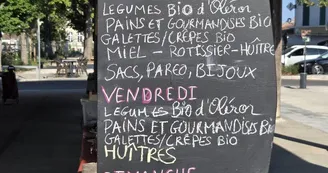 LEGUMES BIO d'Oléron
PAINS ET GOURMANDISES BIO
GALETTES/CRÊPES BIO
MIEL - ROTISSIER - HUÎTRE
SACS, PAREO, BIJOUX
VENDREDI
LEGUMES Bio d'Oléron
PAINS ET GOURMANDISES BIO
GALETTES/CRÊPES BIO
HUÎTRES
DIMANCHE